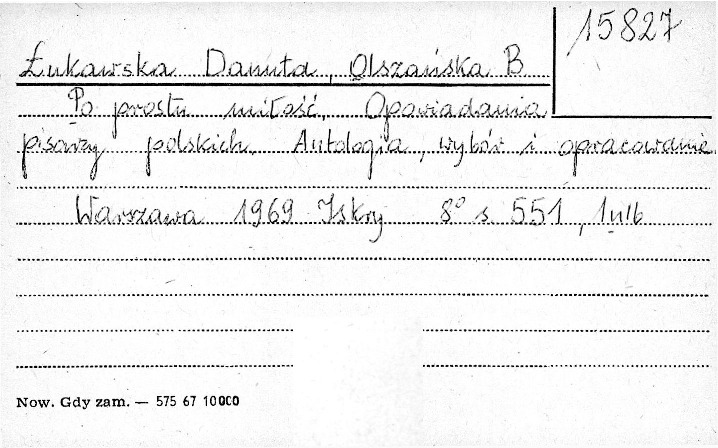 15827
Łukawska Danuta, Olszańska B
Po prostu miłość. Opowiadania
pisarzy polskich. Antologia, wybór i opracowanie
Warszawa 1969 Iskry 8° s. 551, 1 nlb
Now. Gdy zam. — 575 67 10000